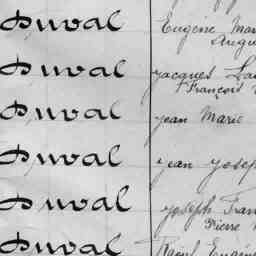 Duval Eugène Mar
Augu
Duval Jacques La
François
Duval Jean Marie
Duval Jean Josep
Duval Joseph Fran
Pierre
Duval